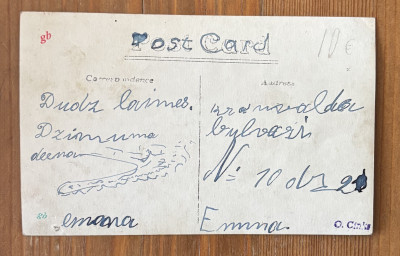 gb
Post Card
10 €
Correspondence
Address
Dudz laimes.
Dzimuma
deena
emma
Kranvalda
bulvaři
N: 10 dz 21
Emma.
gb